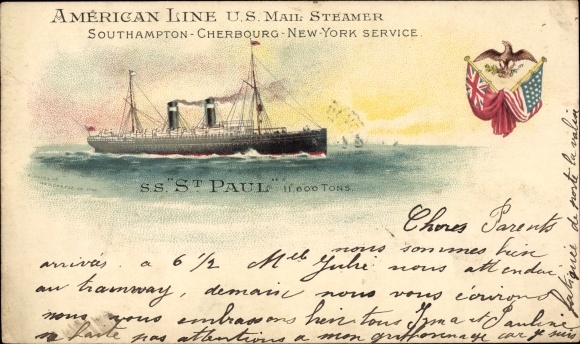 AMERICAN LINE U.S. MAIL STEAMER
SOUTHAMPTON - CHERBOURG - NEW-YORK SERVICE.
S.S. "ST PAUL" 11,600 TONS.
Chores Parents
nous sommes bien
arrivés. a 6 1/2 Mlle Julie nous attendai
au tramway, demain nous vous écrirons
nous vous embrassons bien tous Irma et Pauline
ne faite pas attentions a mon griffonnage car je suis
fatiguée de porte la valise